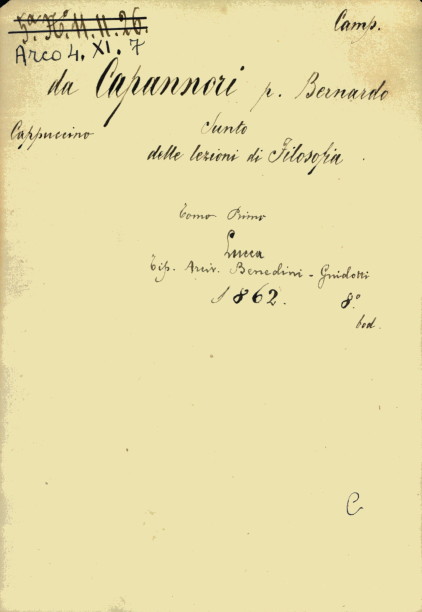 Camp.
Arco 4. XI. 7
da Capannori p. Bernardo
Cappuccino
Sunto
delle lezioni di Filosofia.
Tomo Primo
Lucca
Tip. Arciv. Benedini - Guidotti
1862. 8.°
C